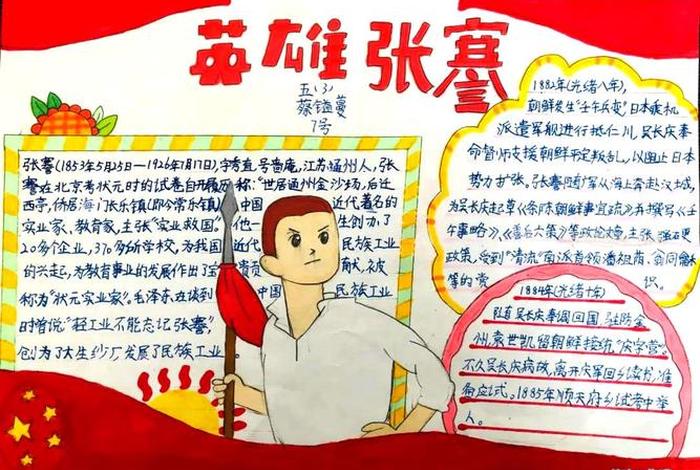 英雄张謇
五(3)
蔡镒蔓
7号
张謇(1853年5月25日—1926年7月17日),字季直,号啬庵,江苏通州人,张
謇在北京考状元时的试卷自开履历称:“世居通州金沙场,后迁
西亭,侨居海门长乐镇(即今常乐镇) 中国 近代著名的
实业家、教育家,主张“实业救国。”他一 生创办了
20多个企业,370多所学校,为我国 近代 民族工业
的兴起,为教育事业的发展作出了宝 贵贡 献,被
称为“状元实业家”。毛泽东在谈到 中国 民族工业
时曾说:“轻工业不能忘记张謇”
创办了大生纱厂发展了民族工业
1882年(光绪八年),
朝鲜发生“壬午兵变”,日本乘机
派遣军舰进行抵仁川,吴长庆奉
命督师支援朝鲜平定叛乱,以阻止日本
势力扩张。张謇随庆军从海上奔赴汉城,
为吴长庆起草《条陈朝鲜事宜疏》,并撰写《壬
午事略》、《善后六策》等政论文章,主张强硬
政策,受到“清流”南派首领潘祖荫、翁同龢
等的赏 识。
1884年(光绪十年)
随吴长庆奉调回国,驻防金
州,袁世凯留朝鲜接统“庆字营”。
不久吴长庆病故,离开庆军回乡读书,准
备应试。1885年顺天府乡试考中举
人。